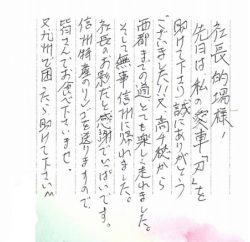 社長的場様！
先日は私の愛車「刀」を
助けて下さり誠にありがとう
ございました!!又高千穂から
西都までの道とても楽しく走れました。
そして無事信州に帰れました。
社長のお陰だと感謝でいっぱいです。
信州特産のリンゴを送りますので、
皆さんでお食べ下さいませ。
又九州で困ったら助けて下さい